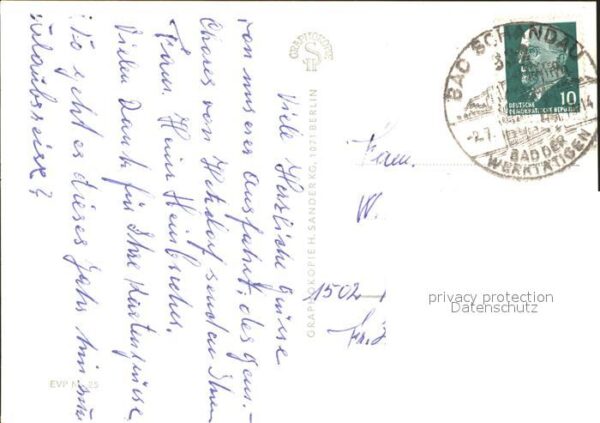 Viele Herzliche Grüsse
von unserer Ausfahrt, des gem. -
Chores von Hetzdorf senden Ihnen
Fam. Heinz Heinbücher.
Vielen Dank für Ihre Kartengrüsse.
Wo geht es dieses Jahr hin zur
Urlaubsreise?
GRAPHOKOPIE H. SANDER KG, 1071 BERLIN
EVP
25
Fam.
W.
1502
BAD SCHANDAU
-2.7.
14
BAD DER
WERKTÄTIGEN
DEUTSCHE
DEMOKRATISCHE REPUBLIK
10
privacy protection
Datenschutz